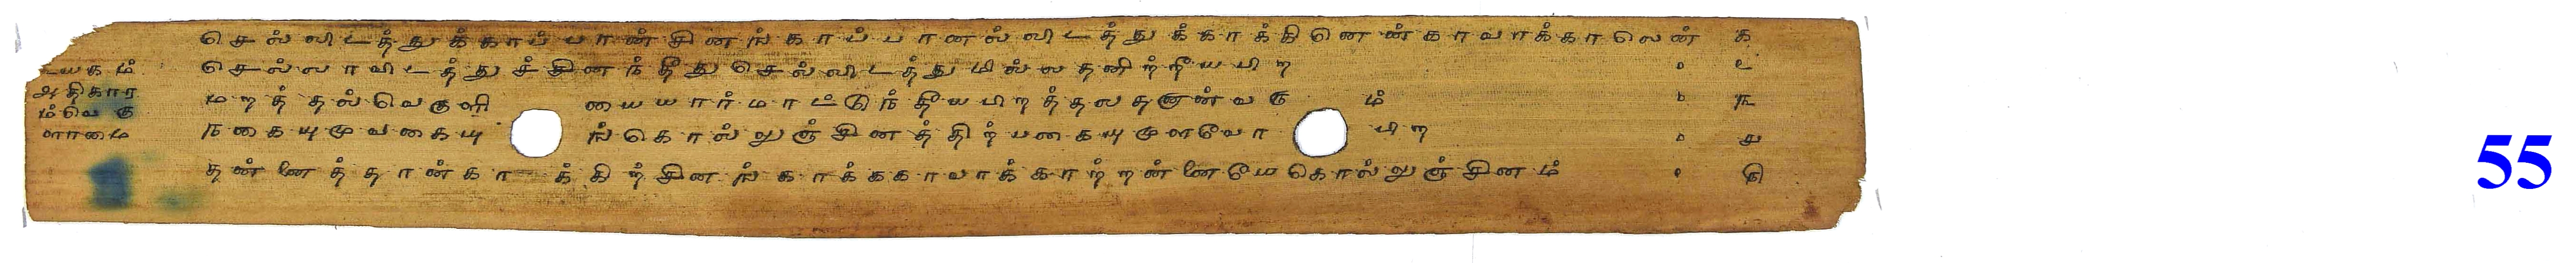 செல்லிடத்துக்காப்பான்சினங்காப்பானல்லிடத்துக்காக்கினென்காவாக்காலென் க
செல்லாவிடத்துச்சினந்தீதுசெல்லிடத்துமில்லதனிற்றீயபிற ௨
மறத்தல்வெகுளியையார்மாட்டுந்தீயபிறத்தலதனான்வரும் ௩
நகையுமுவகையுங்கொல்லுஞ்சினத்திற்பகையுமுளவோபிற ௪
தன்னைத்தான்காக்கிற்சினங்காக்ககாவாக்காற்றன்னையேகொல்லுஞ்சினம் ௫
யகம்
அதிகார
ம்வெகு
ளாமை
55